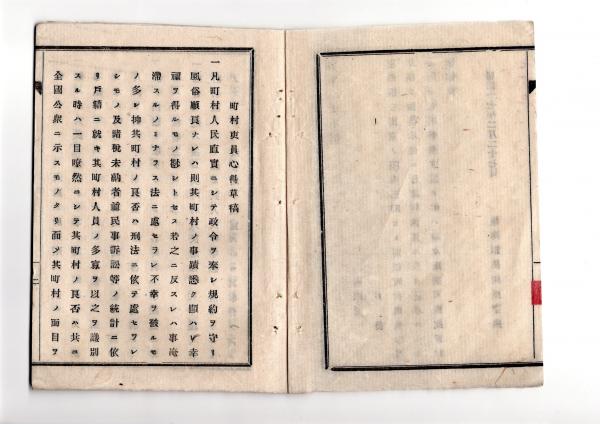 町村吏員心得草稿
一凡町村人民直實ニシテ政令ヲ奉レ規約ヲ守リ
風俗順良ナレハ則其町村ノ事蹟悉ク顕ハレ幸
福ヲ得ルモノ尠シトセス若之ニ反スレハ事淹
滯スルノミナラス法ニ處セラレ不幸ヲ破ルモ
ノ多レ抑其町村ノ良否ハ刑法ニ依テ處セラレ
シモノ及諸税未納者並民事訴訟等ノ統計ニ依
リ戸籍ニ就キ其町村人員ノ多寡ヲ以之ヲ識別
スル時ハ一目瞭然ニシテ其町村ノ良否ハ共ニ
全國公衆ニ示スモノタリ而〆其町村ノ面目ヲ